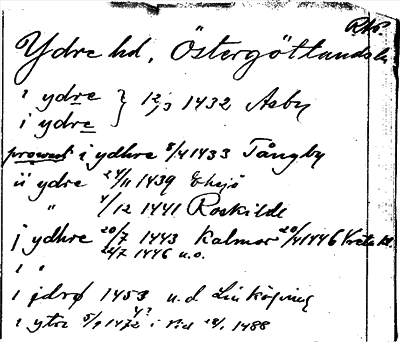 RAp.
Ydre hd, Östergötlands l.
i ydre } 12/3 1432 Asby
i ydre
prowest i ydhre 8/4 1433 Tångby
ii ydre 24/11 1439 Ekesjö
" 4/12 1441 Roskilde
j ydhre 20/7 1443 Kalmar 20/4 1446 Vreta kl
22/7 1446 u.o.
i "
i jdrø 1453 u.d Linköping
i ytre 5/9 1472 i 1488